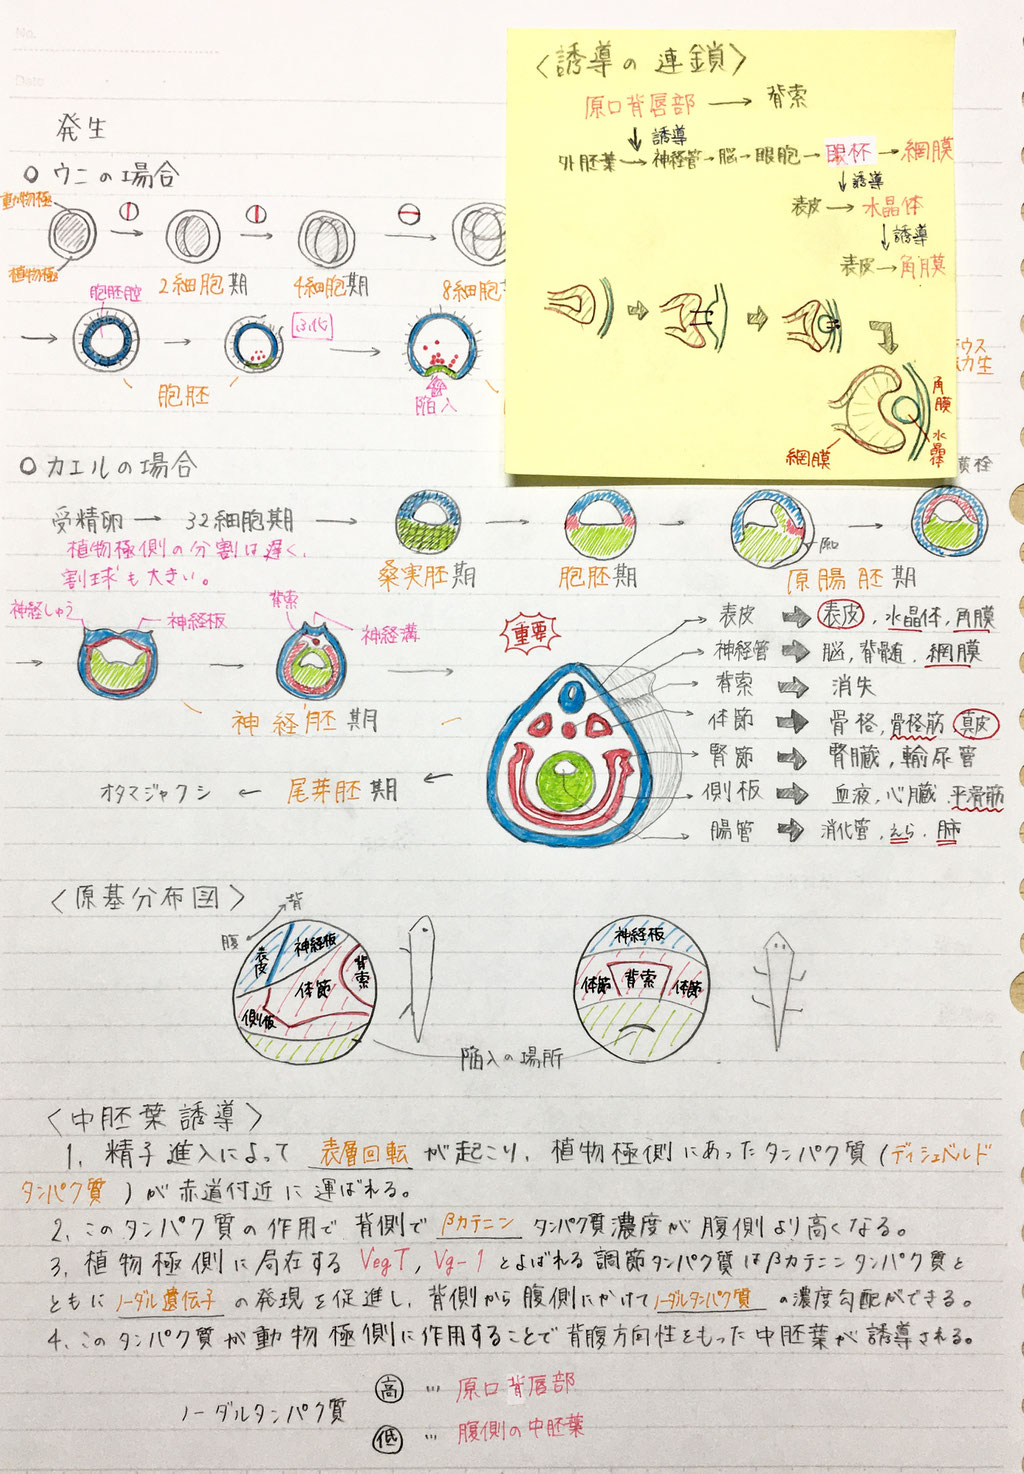 No.
Date
発生
○ウニの場合
動物極
植物極
2細胞期
4細胞期
8細胞
胞胚腔
ふ化
胞胚
陥入
〈誘導の連鎖〉
原口背唇部 → 背索
↓誘導
外胚葉→神経管→脳→眼胞→眼杯→網膜
↓誘導
表皮→水晶体
↓誘導
表皮→角膜
角膜
水晶体
網膜
○カエルの場合
受精卵→32細胞期→
植物極側の分割は遅く、
割球も大きい。
桑実胚期
胞胚期
原口
原腸胚期
神経しゅう
神経板
背索
神経溝
神経胚期
重要
表皮 ➡ 表皮, 水晶体, 角膜
神経管 ➡ 脳, 脊髄, 網膜
背索 ➡ 消失
体節 ➡ 骨格, 骨格筋, 真皮
腎節 ➡ 腎臓, 輸尿管
側板 ➡ 血液, 心臓, 平滑筋
腸管 ➡ 消化管, えら, 肺
オタマジャクシ ← 尾芽胚期 ←
〈原基分布図〉
背
腹
表皮
神経板
体節
背索
側板
神経板
体節
背索
体節
陥入の場所
〈中胚葉誘導〉
1, 精子進入によって 表層回転 が起こり、植物極側にあったタンパク質(ディシェベルド
タンパク質)が赤道付近に運ばれる。
2, このタンパク質の作用で背側でβカテニンタンパク質濃度が腹側より高くなる。
3, 植物極側に局在するVegT, Vg-1とよばれる調節タンパク質はβカテニンタンパク質と
ともにノーダル遺伝子の発現を促進し、背側から腹側にかけてノーダルタンパク質の濃度勾配ができる。
4, このタンパク質が動物極側に作用することで背腹方向性をもった中胚葉が誘導される。
ノーダルタンパク質
高 … 原口背唇部
低 … 腹側の中胚葉